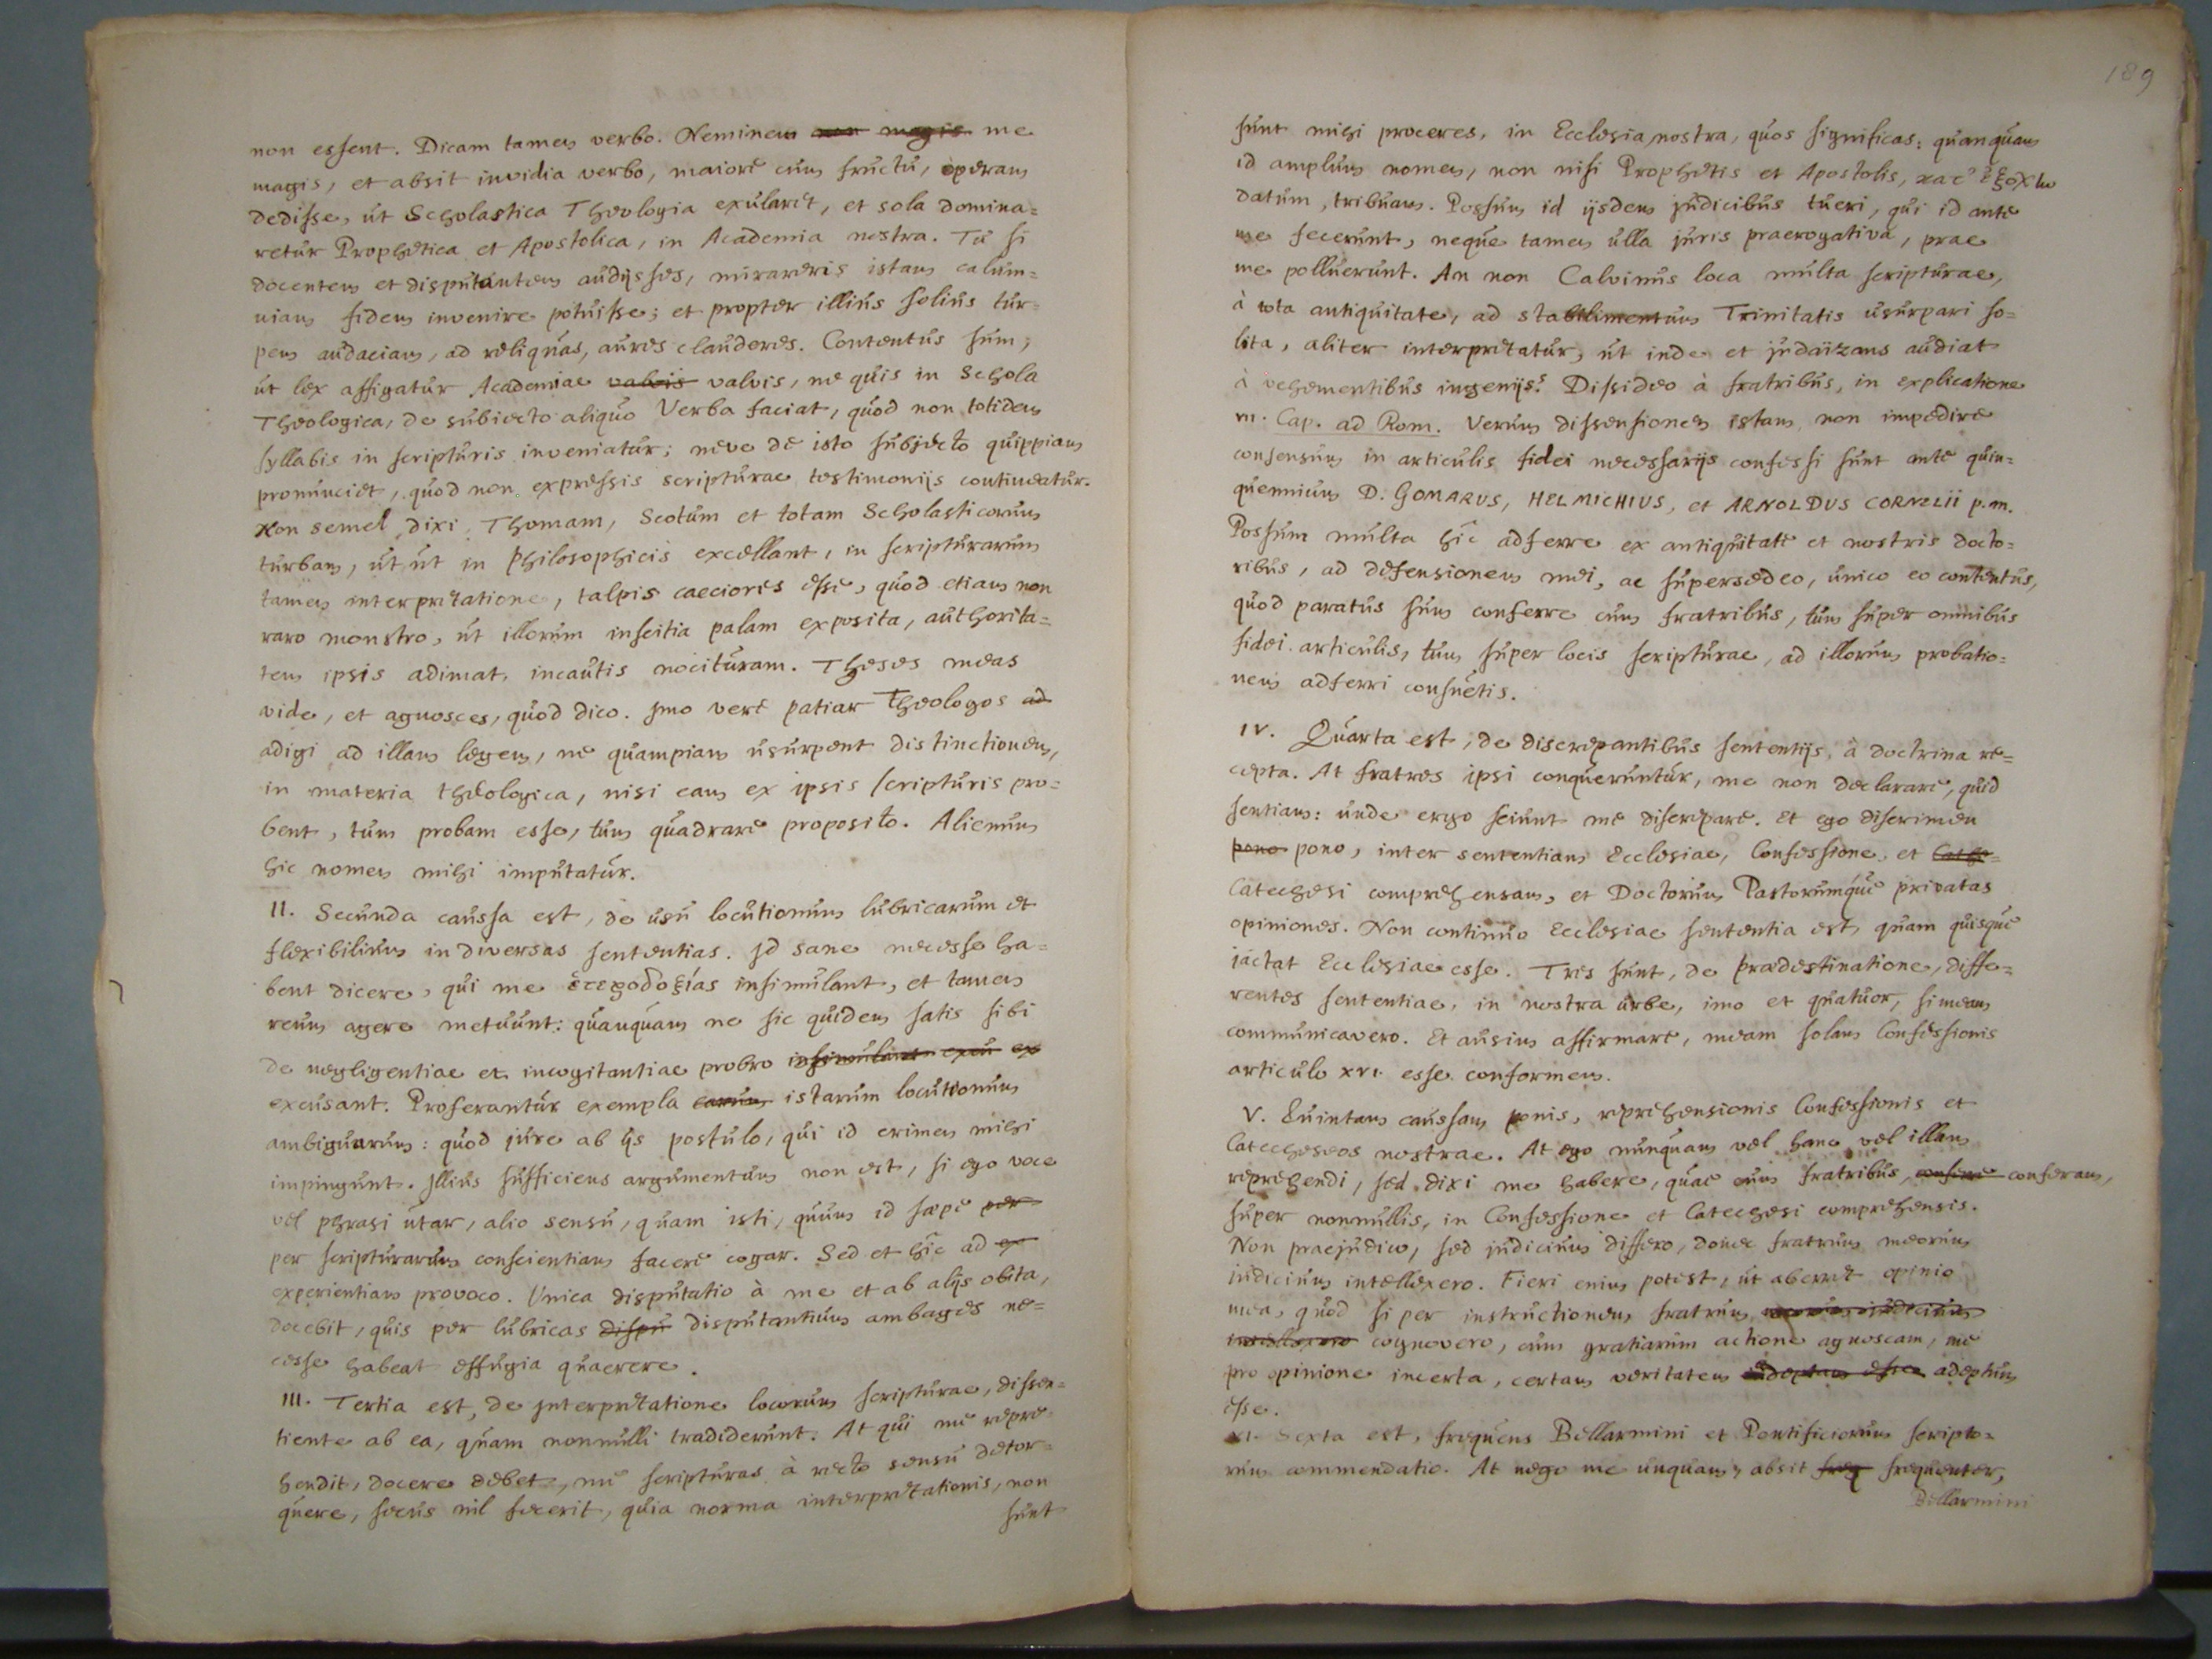 non essent. Dicam tamen verbo. Neminem non magis me
magis, et absit invidia verbo, maiore cum fructu, operam
dedisse, ut Scholastica Theologia exularet, et sola domina=
retur Prophetica et Apostolica, in Academia nostra. Tu si
docentem et disputantem audijsses, mirareris istam calum=
niam fidem invenire potuisse; et propter illius solius tur=
pem audaciam, ad reliquas, aures clauderes. Contentus sum,
ut lex affigatur Academiae valvis valvis, ne quis in Schola
Theologica, de subiecto aliquo Verba faciat, quod non totidem
syllabis in scripturis inveniatur; neve de isto subjecto quippiam
pronunciet, quod non expressis scripturae testimonijs contineatur.
Non semel dixi, Thomam, Scotum et totam Scholasticorum
turbam, ut ut in Philosophicis excellant, in scripturarum
tamen interpretatione, talpis caeciores esse, quod etiam non
raro monstro, ut illorum inscitia palam exposita, authorita=
tem ipsis adimat, incautis nocituram. Theses meas
vide, et agnosces, quod dico. Imo vere patiar Theologos ad
adigi ad illam legem, ne quampiam usurpent distinctionem,
in materia theologica, nisi eam ex ipsis scripturis pro=
bent, tum probam esse, tum quadrare proposito. Alienum
hic nomen mihi imputatur.
II. Secunda caussa est, de usu locutionum lubricarum et
flexibilium in diversas sententias. Id sane necesse ha=
bent dicere, qui me ἑτεροδοξίας insimulant, et tamen
reum agere metuunt: quanquam ne sic quidem satis sibi
de negligentiae et incogitantiae probro insimulant excu ex
excusant. Proferantur exempla earum istarum locutionum
ambiguarum: quod jure ab ijs postulo, qui id crimen mihi
impingunt. Illius sufficiens argumentum non est, si ego voce
vel phrasi utar, alio sensu, quam isti, quum id saepe per
per scripturarum conscientiam facere cogar. Sed et hic ad ex
experientiam provoco. Unica disputatio à me et ab alijs obita,
docebit, quis per lubricas dispu disputantium ambages ne=
cesse habeat effugia quaerere.
III. Tertia est, de interpretatione locorum scripturae, dissen=
tiente ab ea, quam nonnulli tradiderunt. At qui me repre=
hendit, docere debet, me scripturas à recto sensu detor=
quere, secus nil fecerit, quia norma interpretationis, non
sunt
189
sunt mihi proceres, in Ecclesia nostra, quos significas: quanquam
id amplum nomen, non nisi Prophetis et Apostolis, κατ' ἐξοχὴν
datum, tribuam. Possum id ijsdem judicibus tueri, qui id ante
me fecerunt, neque tamen ulla juris praerogativa, prae
me polluerunt. An non Calvinus loca multa scripturae,
à tota antiquitate, ad stabilimentum Trinitatis usurpari so=
lita, aliter interpretatur, ut inde et judaïzans audiat
à vehementibus ingenijs? Dissideo à fratribus, in explicatione
Cap. ad Rom. Verum dissensionem istam non impedire
consensum in articulis fidei necessarijs confessi sunt ante quin=
quennium D. GOMARUS, HELMICHIUS, et ARNOLDUS CORNELII p.m.
Possum multa hic adferre ex antiquitate et nostris docto=
ribus, ad defensionem mei, ac supersedeo, unico eo contentus,
quod paratus sum conferre cum fratribus, tum super omnibus
fidei articulis, tum super locis scripturae, ad illorum probatio=
nem adferri consuetis.
IV. Quarta est, de discrepantibus sententijs, à doctrina re=
cepta. At fratres ipsi conqueruntur, me non declarare, quid
sentiam: unde ergo sciunt me discrepare. Et ego discrimen
pono pono, inter sententiam Ecclesiae, Confessione, et Cathe=
Catechesi comprehensam, et Doctorum Pastorumque privatas
opiniones. Non continuo Ecclesiae sententia est, quam quisque
jactat Ecclesiae esse. Tres sunt, de praedestinatione, diffe=
rentes sententiae, in nostra urbe, imo et quatuor, si meam
communicavero. Et ausim affirmare, meam solam Confessionis
articulo XVI. esse conformem.
V. Quintam caussam ponis, reprehensionis Confessionis et
Catecheseos nostrae. At ego nunquam vel hanc vel illam
reprehendi, sed dixi me habere, quae cum fratribus, confere conferam,
super nonnullis, in Confessione et Catechesi comprehensis.
Non praejudico, sed judicium differo, donec fratrum meorum
judicium intellexero. Fieri enim potest, ut aberret opinio
mea, quod si per instructionem fratrum meorum iudicium
intellexero cognovero, cum gratiarum actione agnoscam, me
pro opinione incerta, certam veritatem adeptam esse adeptum
esse.
VI. Sexta est, frequens Bellarmini et Pontificiorum scripto=
rum commendatio. At nego me unquam, absit freq frequenter,
Bellarmini